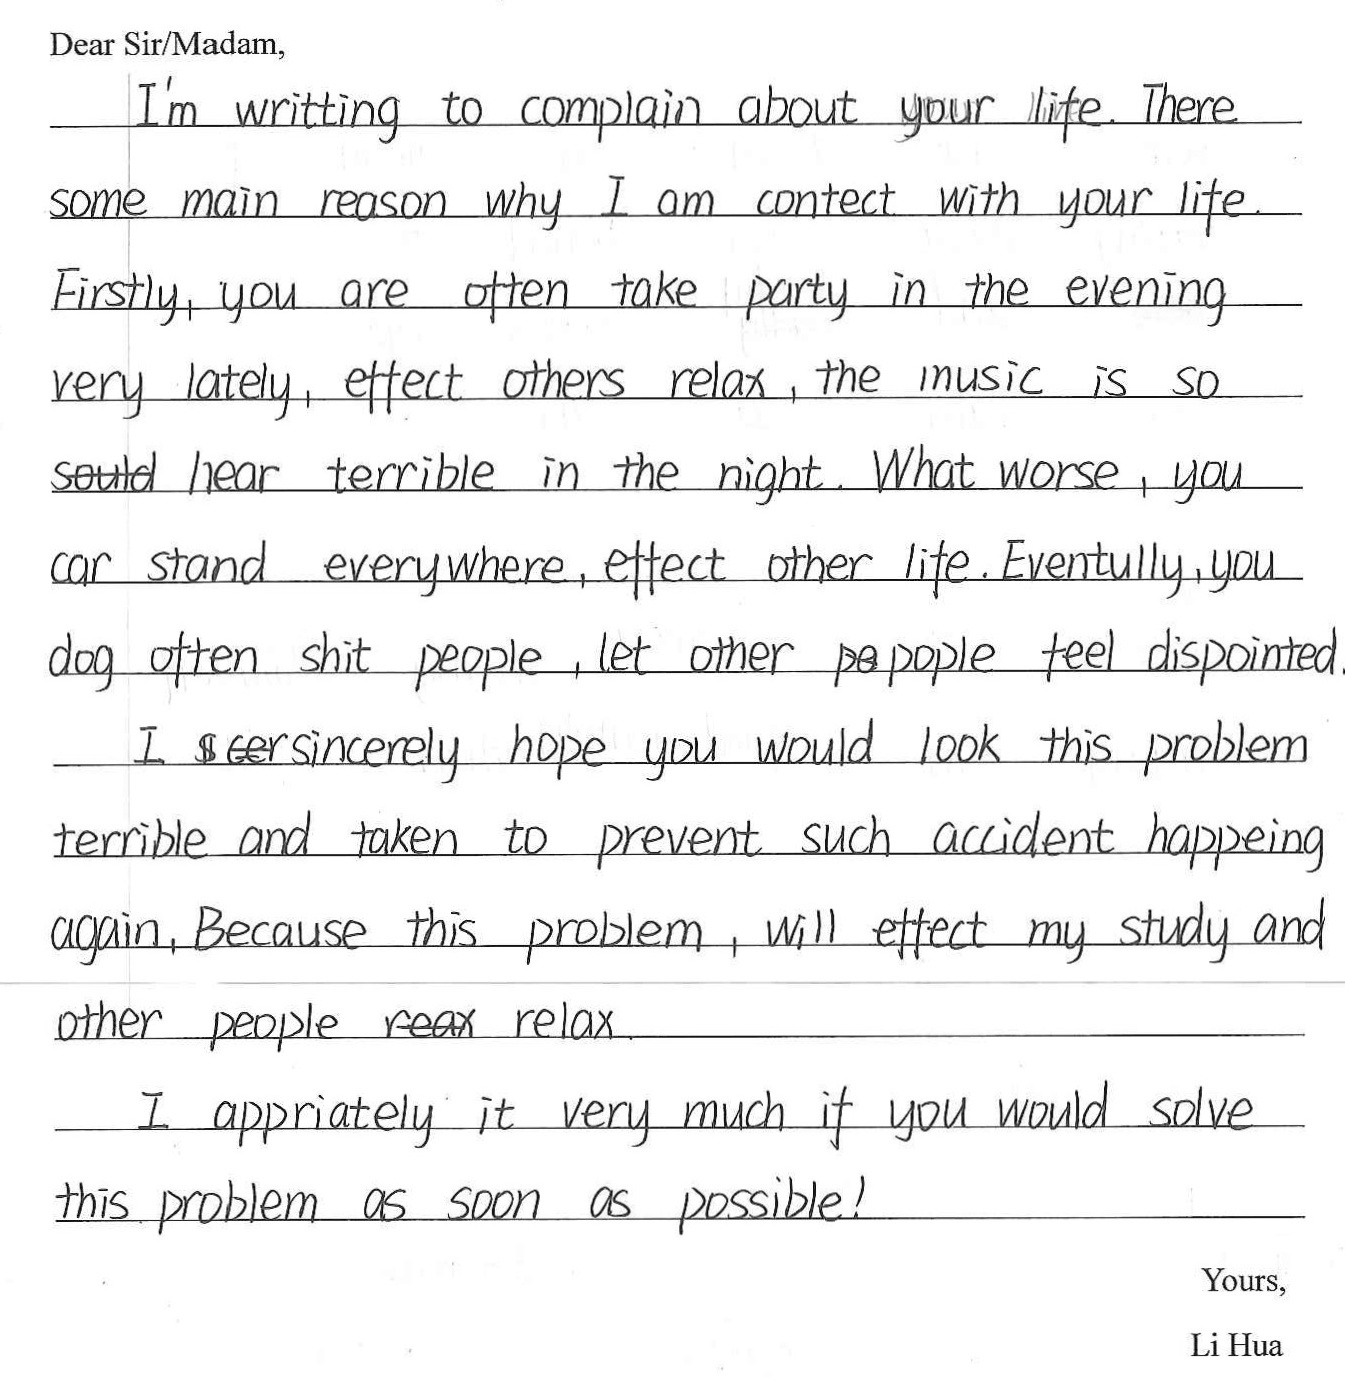 Dear Sir/Madam,
I'm writting to complain about your life. There
some main reason why I am contect with your life.
Firstly, you are often take party in the evening
very lately, effect others relax, the music is so
hear terrible in the night. What worse, you
car stand everywhere, effect other life. Eventully, you
dog often shit people, let other popple feel dispointed.
I sincerely hope you would look this problem
terrible and taken to prevent such accident happeing
again, Because this problem, will effect my study and
other people relax.
I appriately it very much if you would solve
this problem as soon as possible!
Yours,
Li Hua